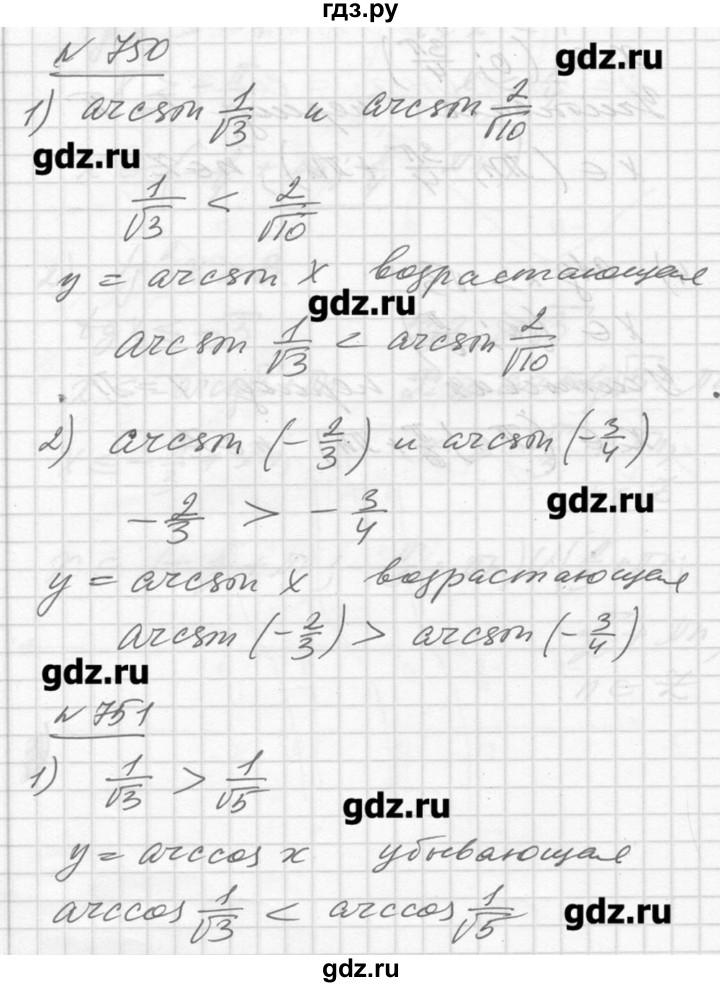 гдз.ру
№ 750
gdz.ru
1) arcsin 1/√3 и arcsin 2/√10
gdz.ru
1/√3 < 2/√10
y = arcsin x возрастающая
gdz.ru
arcsin 1/√3 < arcsin 2/√10
2) arcsin (-2/3) и arcsin (-3/4)
gdz.ru
-2/3 > -3/4
y = arcsin x возрастающая
arcsin (-2/3) > arcsin (-3/4)
gdz.ru
№ 751
1) 1/√3 > 1/√5
gdz.ru
y = arccos x убывающая
arccos 1/√3 < arccos 1/√5
gdz.ru
gdz.ru